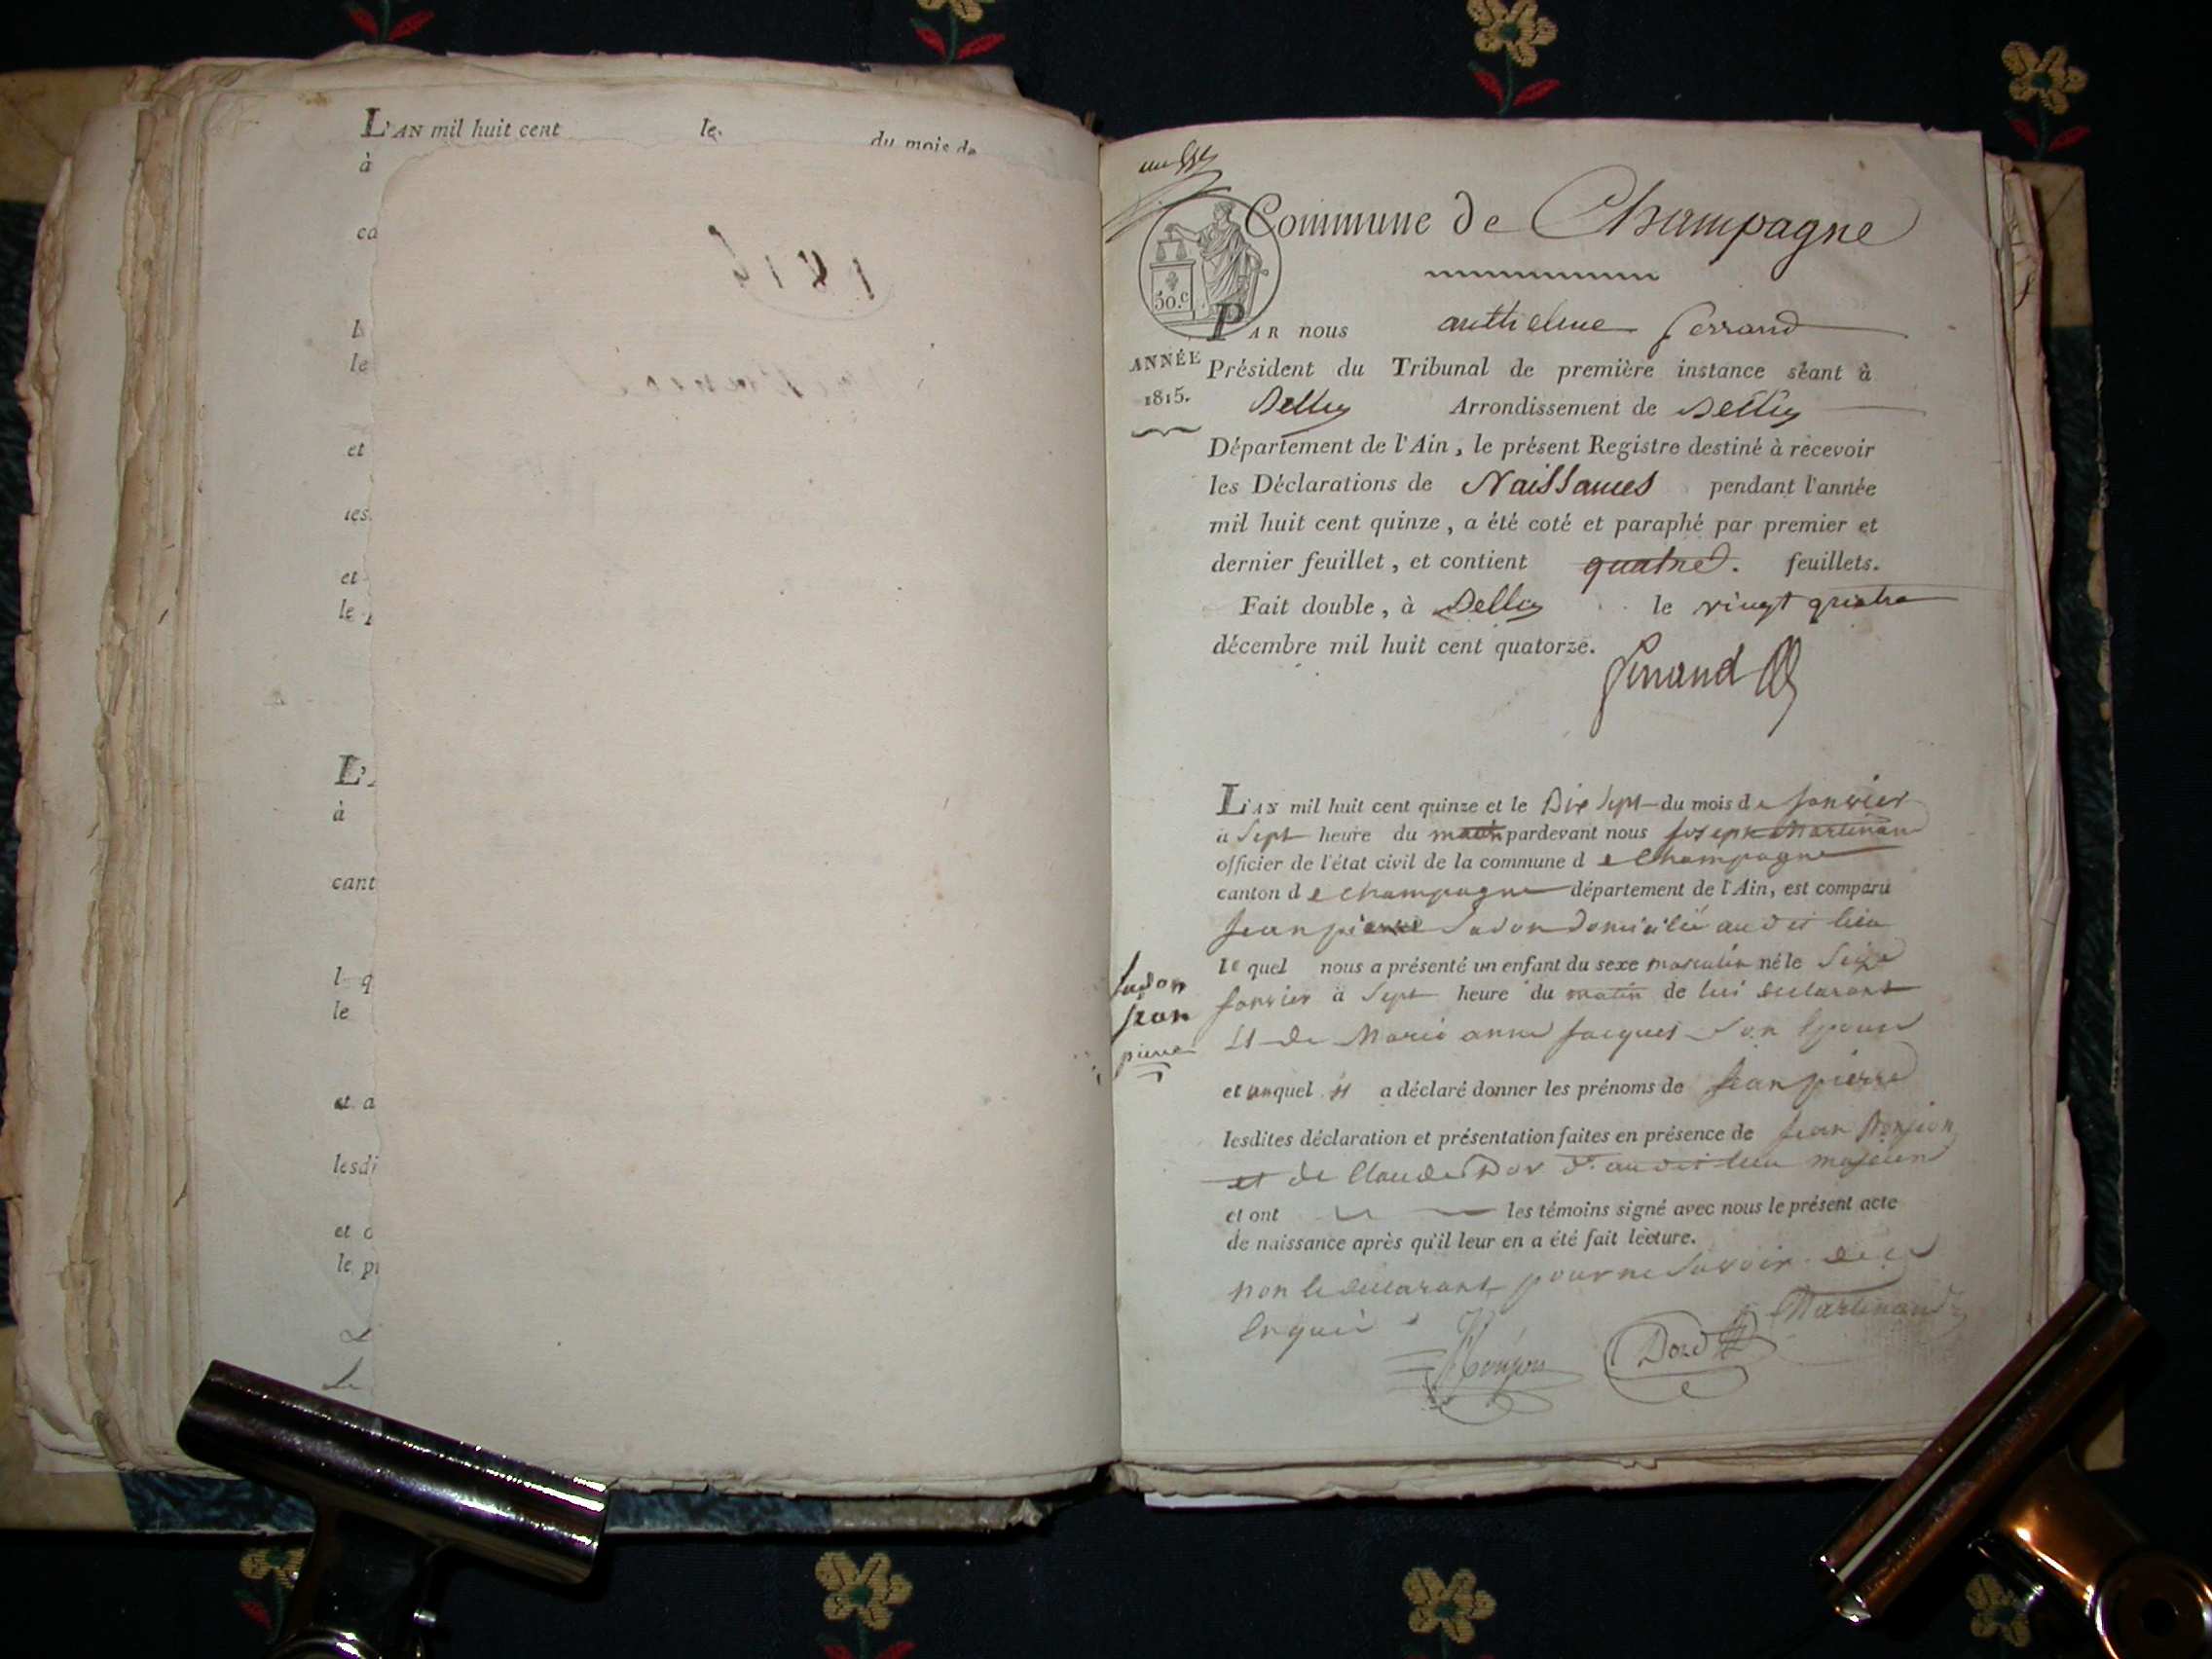 L'AN mil huit cent le du mois de
à
ca
le
et
ies
et
le
L'
à
cant
l q
le
et a
lesdi
et
le
Commune de Champagne
50.c
PAR nous anthelme ferrand
ANNÉE
1815.
Président du Tribunal de première instance séant à
Belley Arrondissement de Belley
Département de l'Ain, le présent Registre destiné à recevoir
les Déclarations de Naissances pendant l'année
mil huit cent quinze, a été coté et paraphé par premier et
dernier feuillet, et contient quatre. feuillets.
Fait double, à Belley le vingt quatre
décembre mil huit cent quatorze.
ferrand
L'AN mil huit cent quinze et le Dix sept du mois de janvier
à Sept heure du matin pardevant nous joseph Martinand
officier de l'état civil de la commune de Champagne
canton de champagne département de l'Ain, est comparu
jean pierre Savon domicilié au dit lieu
lequel nous a présenté un enfant du sexe masculin né le Seize
janvier à Sept heure du matin de lui declarant
et de Marie anne jacques Son Epouse
et auquel il a déclaré donner les prénoms de jean pierre
Savon
jean
pierre
lesdites déclaration et présentation faites en présence de jean
et de Claude audit lieu majeurs
et ont les témoins signé avec nous le présent acte
de naissance après qu'il leur en a été fait lecture.
non le declarant pour ne Savoir de ce
Enquis
Martinand